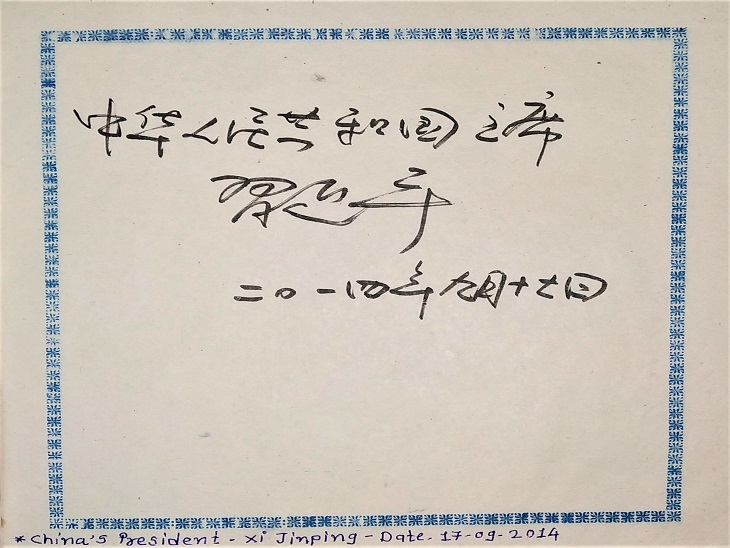 中华人民共和国主席
习近平
二〇一四年九月十七日
* China's President - Xi Jinping - Date. 17-09-2014